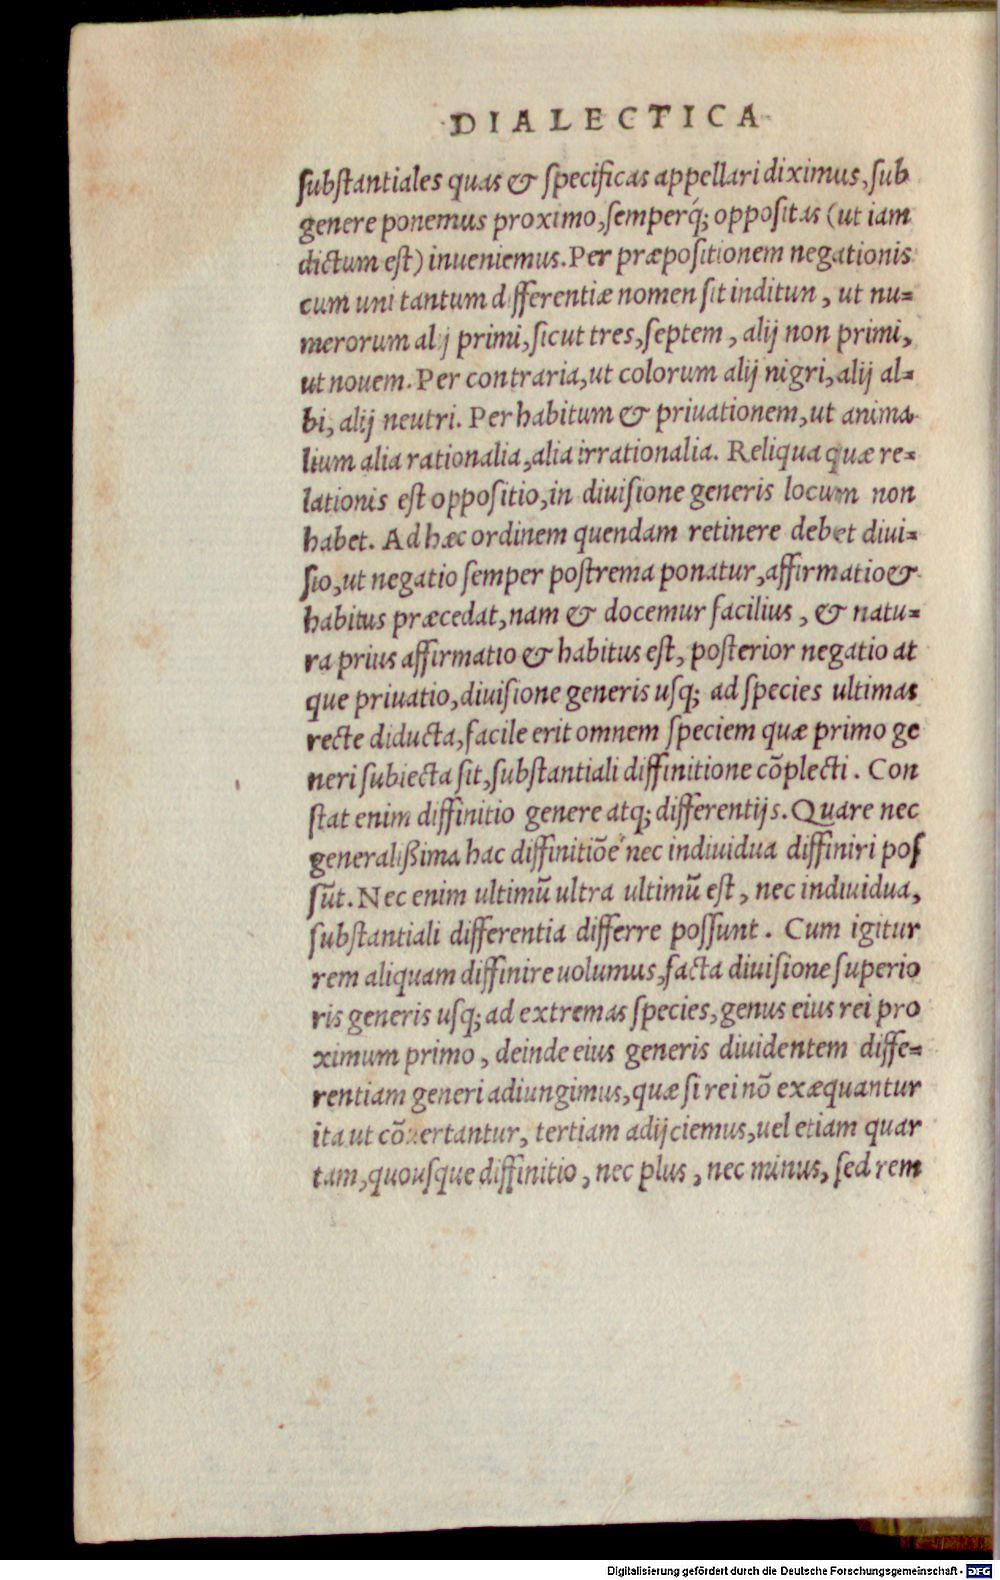 DIALECTICA
substantiales quas & specificas appellari diximus, sub
genere ponemus proximo, semperq́; oppositas (ut iam
dictum est) inueniemus. Per præpositionem negationis
cum uni tantum differentiæ nomen sit inditun, ut nu=
merorum alij primi, sicut tres, septem, alij non primi,
ut nouem. Per contraria, ut colorum alij nigri, alij al=
bi, alij neutri. Per habitum & priuationem, ut anima
lium alia rationalia, alia irrationalia. Reliqua quæ re=
lationis est oppositio, in diuisione generis locum non
habet. Ad hæc ordinem quendam retinere debet diui=
sio, ut negatio semper postrema ponatur, affirmatio &
habitus præcedat, nam & docemur facilius, & natu=
ra prius affirmatio & habitus est, posterior negatio at
que priuatio, diuisione generis usq; ad species ultimas
recte diducta, facile erit omnem speciem quæ primo ge
neri subiecta sit, substantiali diffinitione cōplecti. Con
stat enim diffinitio genere atq; differentijs. Quare nec
generalißima hac diffinitiōe nec indiuidua diffiniri pos
sūt. Nec enim ultimū ultra ultimū est, nec indiuidua,
substantiali differentia differre possunt. Cum igitur
rem aliquam diffinire uolumus, facta diuisione superio
ris generis usq; ad extremas species, genus eius rei pro
ximum primo, deinde eius generis diuidentem diffe=
rentiam generi adiungimus, quæ si rei nō exæquantur
ita ut cōuertantur, tertiam adijciemus, uel etiam quar
tam, quousque diffinitio, nec plus, nec minus, sed rem
Digitalisierung gefördert durch die Deutsche Forschungsgemeinschaft - DFG